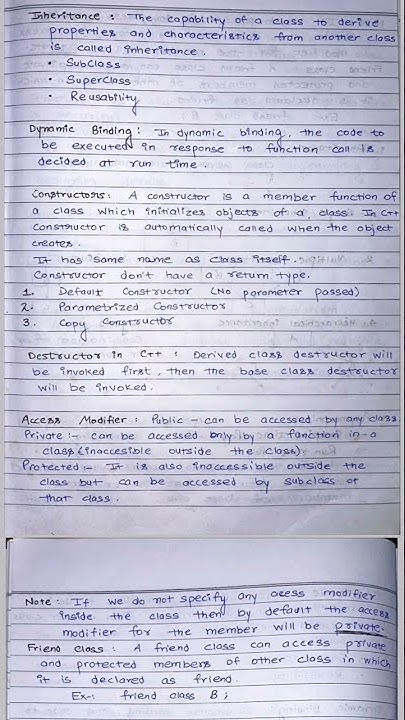 Inheritance : The capability of a class to derive
properties and characteristics from another class
is called inheritance.
• SubClass
• SuperClass
• Reusability
Dynamic Binding: In dynamic binding, the code to
be executed in response to function call is
decided at run time.
Constructors: A constructor is a member function of
a class which initializes objects of a class. In C++
constructor is automatically called when the object
creates.
It has same name as class itself.
Constructor don't have a return type.
1. Default Constructor (No parameter passed)
2. Parametrized Constructor
3. Copy Constructor
Destructor in C++ : Derived class destructor will
be invoked first, then the base class destructor
will be invoked.
Access Modifier : Public - can be accessed by any class
Private :- can be accessed only by a function in a
class (inaccesible outside the class)
Protected :- It is also inaccessible outside the
class but can be accessed by subclass of
that class.
Note : If we do not specify any acess modifier
inside the class then by default the access
modifier for the member will be private.
Friend Class : A friend class can access private
and protected members of other class in which
it is declared as friend.
Ex-: friend class B;